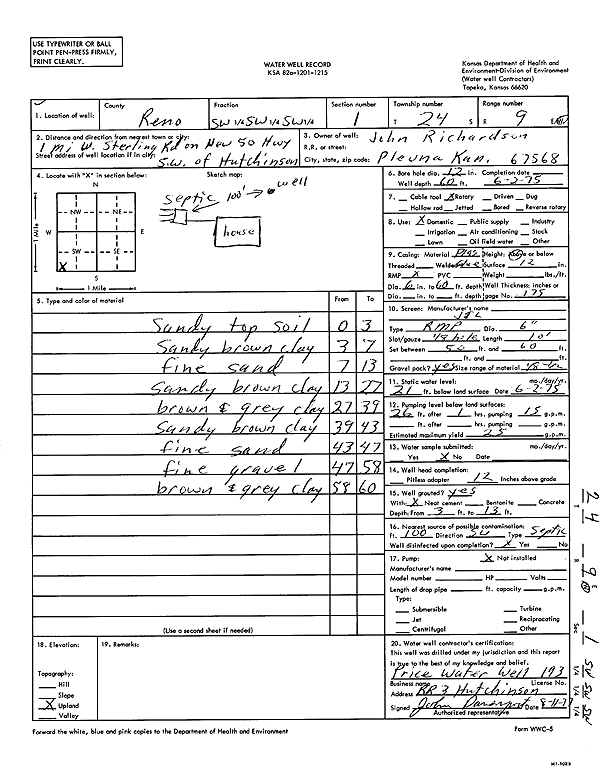 USE TYPEWRITER OR BALL
POINT PEN-PRESS FIRMLY,
PRINT CLEARLY.
WATER WELL RECORD
KSA 82a-1201-1215
Kansas Department of Health and
Environment-Division of Environment
(Water well Contractors)
Topeka, Kansas 66620
1. Location of well:
County Reno
Fraction SW 1/4 SW 1/4 SW 1/4
Section number 1
Township number T 24 S
Range number R 9 E/W
2. Distance and direction from nearest town or city:
1 mi W. Sterling Rd on New 50 Hwy
Street address of well location if in city: S.W. of Hutchinson
3. Owner of well: John Richardson
R.R. or street:
City, state, zip code: Plevna Kan. 67568
4. Locate with "X" in section below:
Sketch map:
N
NW NE
W E
SW SE
X
S
1 Mile
1 Mile
septic 100' well
house
6. Bore hole dia. 12 in. Completion date
Well depth 60 ft. 6-2-75
7. Cable tool X Rotary Driven Dug
Hollow rod Jetted Bored Reverse rotary
8. Use: X Domestic Public supply Industry
Irrigation Air conditioning Stock
Lawn Oil field water Other
9. Casing: Material Plas Height: Above or below
Threaded Welded Glue Surface 12 in.
RMP X PVC Weight lbs./ft.
Dia. 6 in. to 60 ft. depth Wall Thickness: inches or
Dia. in. to ft. depth gage No. 175
5. Type and color of material From To
Sandy top soil 0 3
Sandy brown clay 3 7
fine sand 7 13
Sandy brown clay 13 27
brown & grey clay 27 39
Sandy brown clay 39 43
fine sand 43 47
fine gravel 47 58
brown & grey clay 58 60
(Use a second sheet if needed)
10. Screen: Manufacturer's name
Type RMP Dia. 6"
Slot/gauze Length 10'
Set between 50 ft. and 60 ft.
ft. and ft.
Gravel pack? yes Size range of material
11. Static water level: mo./day/yr.
21 ft. below land surface Date 6-2-75
12. Pumping level below land surfaces:
26 ft. after 1 hrs. pumping 15 g.p.m.
ft. after hrs. pumping g.p.m.
Estimated maximum yield 25 g.p.m.
13. Water sample submitted: mo./day/yr.
Yes X No Date
14. Well head completion:
Pitless adapter 12 Inches above grade
15. Well grouted? yes
With: X Neat cement Bentonite Concrete
Depth: From 3 ft. to 13 ft.
16. Nearest source of possible contamination:
ft. 100 Direction Type Septic
Well disinfected upon completion? X Yes No
17. Pump: X Not installed
Manufacturer's name
Model number HP Volts
Length of drop pipe ft. capacity g.p.m.
Type:
Submersible Turbine
Jet Reciprocating
Centrifugal Other
18. Elevation:
Topography:
Hill
Slope
X Upland
Valley
19. Remarks:
20. Water well contractor's certification:
This well was drilled under my jurisdiction and this report
is true to the best of my knowledge and belief.
Price Water Well 193
Business name License No.
Address RR 3 Hutchinson
Signed John Davenport Date
Authorized representative
Forward the white, blue and pink copies to the Department of Health and Environment
Form WWC-5
T 24
R 9 E W
Sec 1
SW 1/4 SW 1/4 SW 1/4